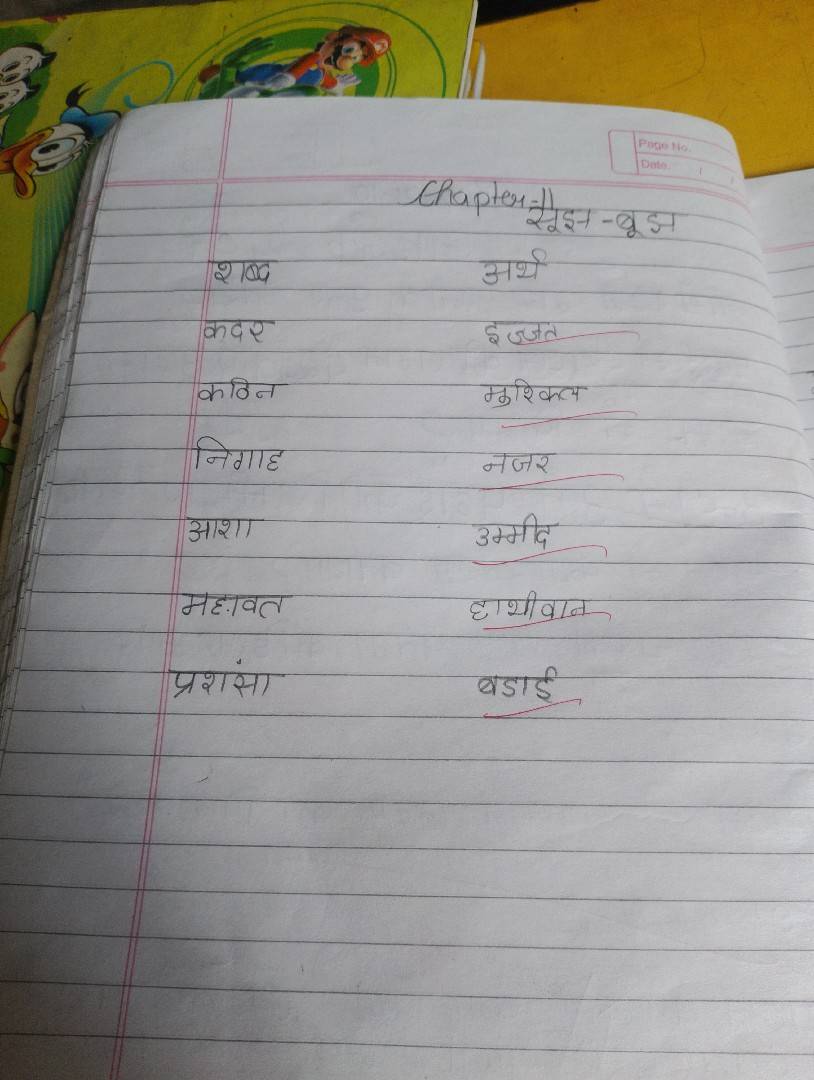 Page No.
Date. / /
Chapter-11
सूझ-बूझ
शब्द अर्थ
कदर इज्जत
कठिन मुश्किल
निगाह नजर
आशा उम्मीद
महावत हाथीवान
प्रशंसा बडाई